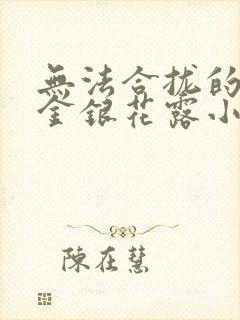 無法合拢的
金銀花露小
陳在慧